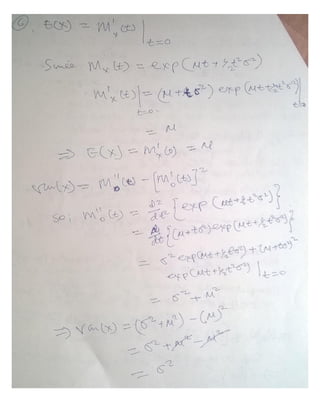 6. E(x) = M'x(t) | t=0
Since Mx(t) = exp(μt + ½t²σ²)
M'x(t)| t=0 = (μ + tσ²) exp(μt + ½t²σ²)| t=0
= μ
⇒ E(x) = M'x(0) = μ
var(x) = M''0(t) - [M'0(t)]²
so, M''0(t) = d²/dt² {exp(μt + ½t²σ²)}
= d/dt {(μ + tσ²) exp(μt + ½t²σ²)}
= σ² exp(μt + ½t²σ²) + (μ + tσ²)²
exp(μt + ½t²σ²) | t=0
= σ² + μ²
⇒ Var(x) = (σ² + μ²) - (μ)²
= σ² + μ² - μ²
= σ²